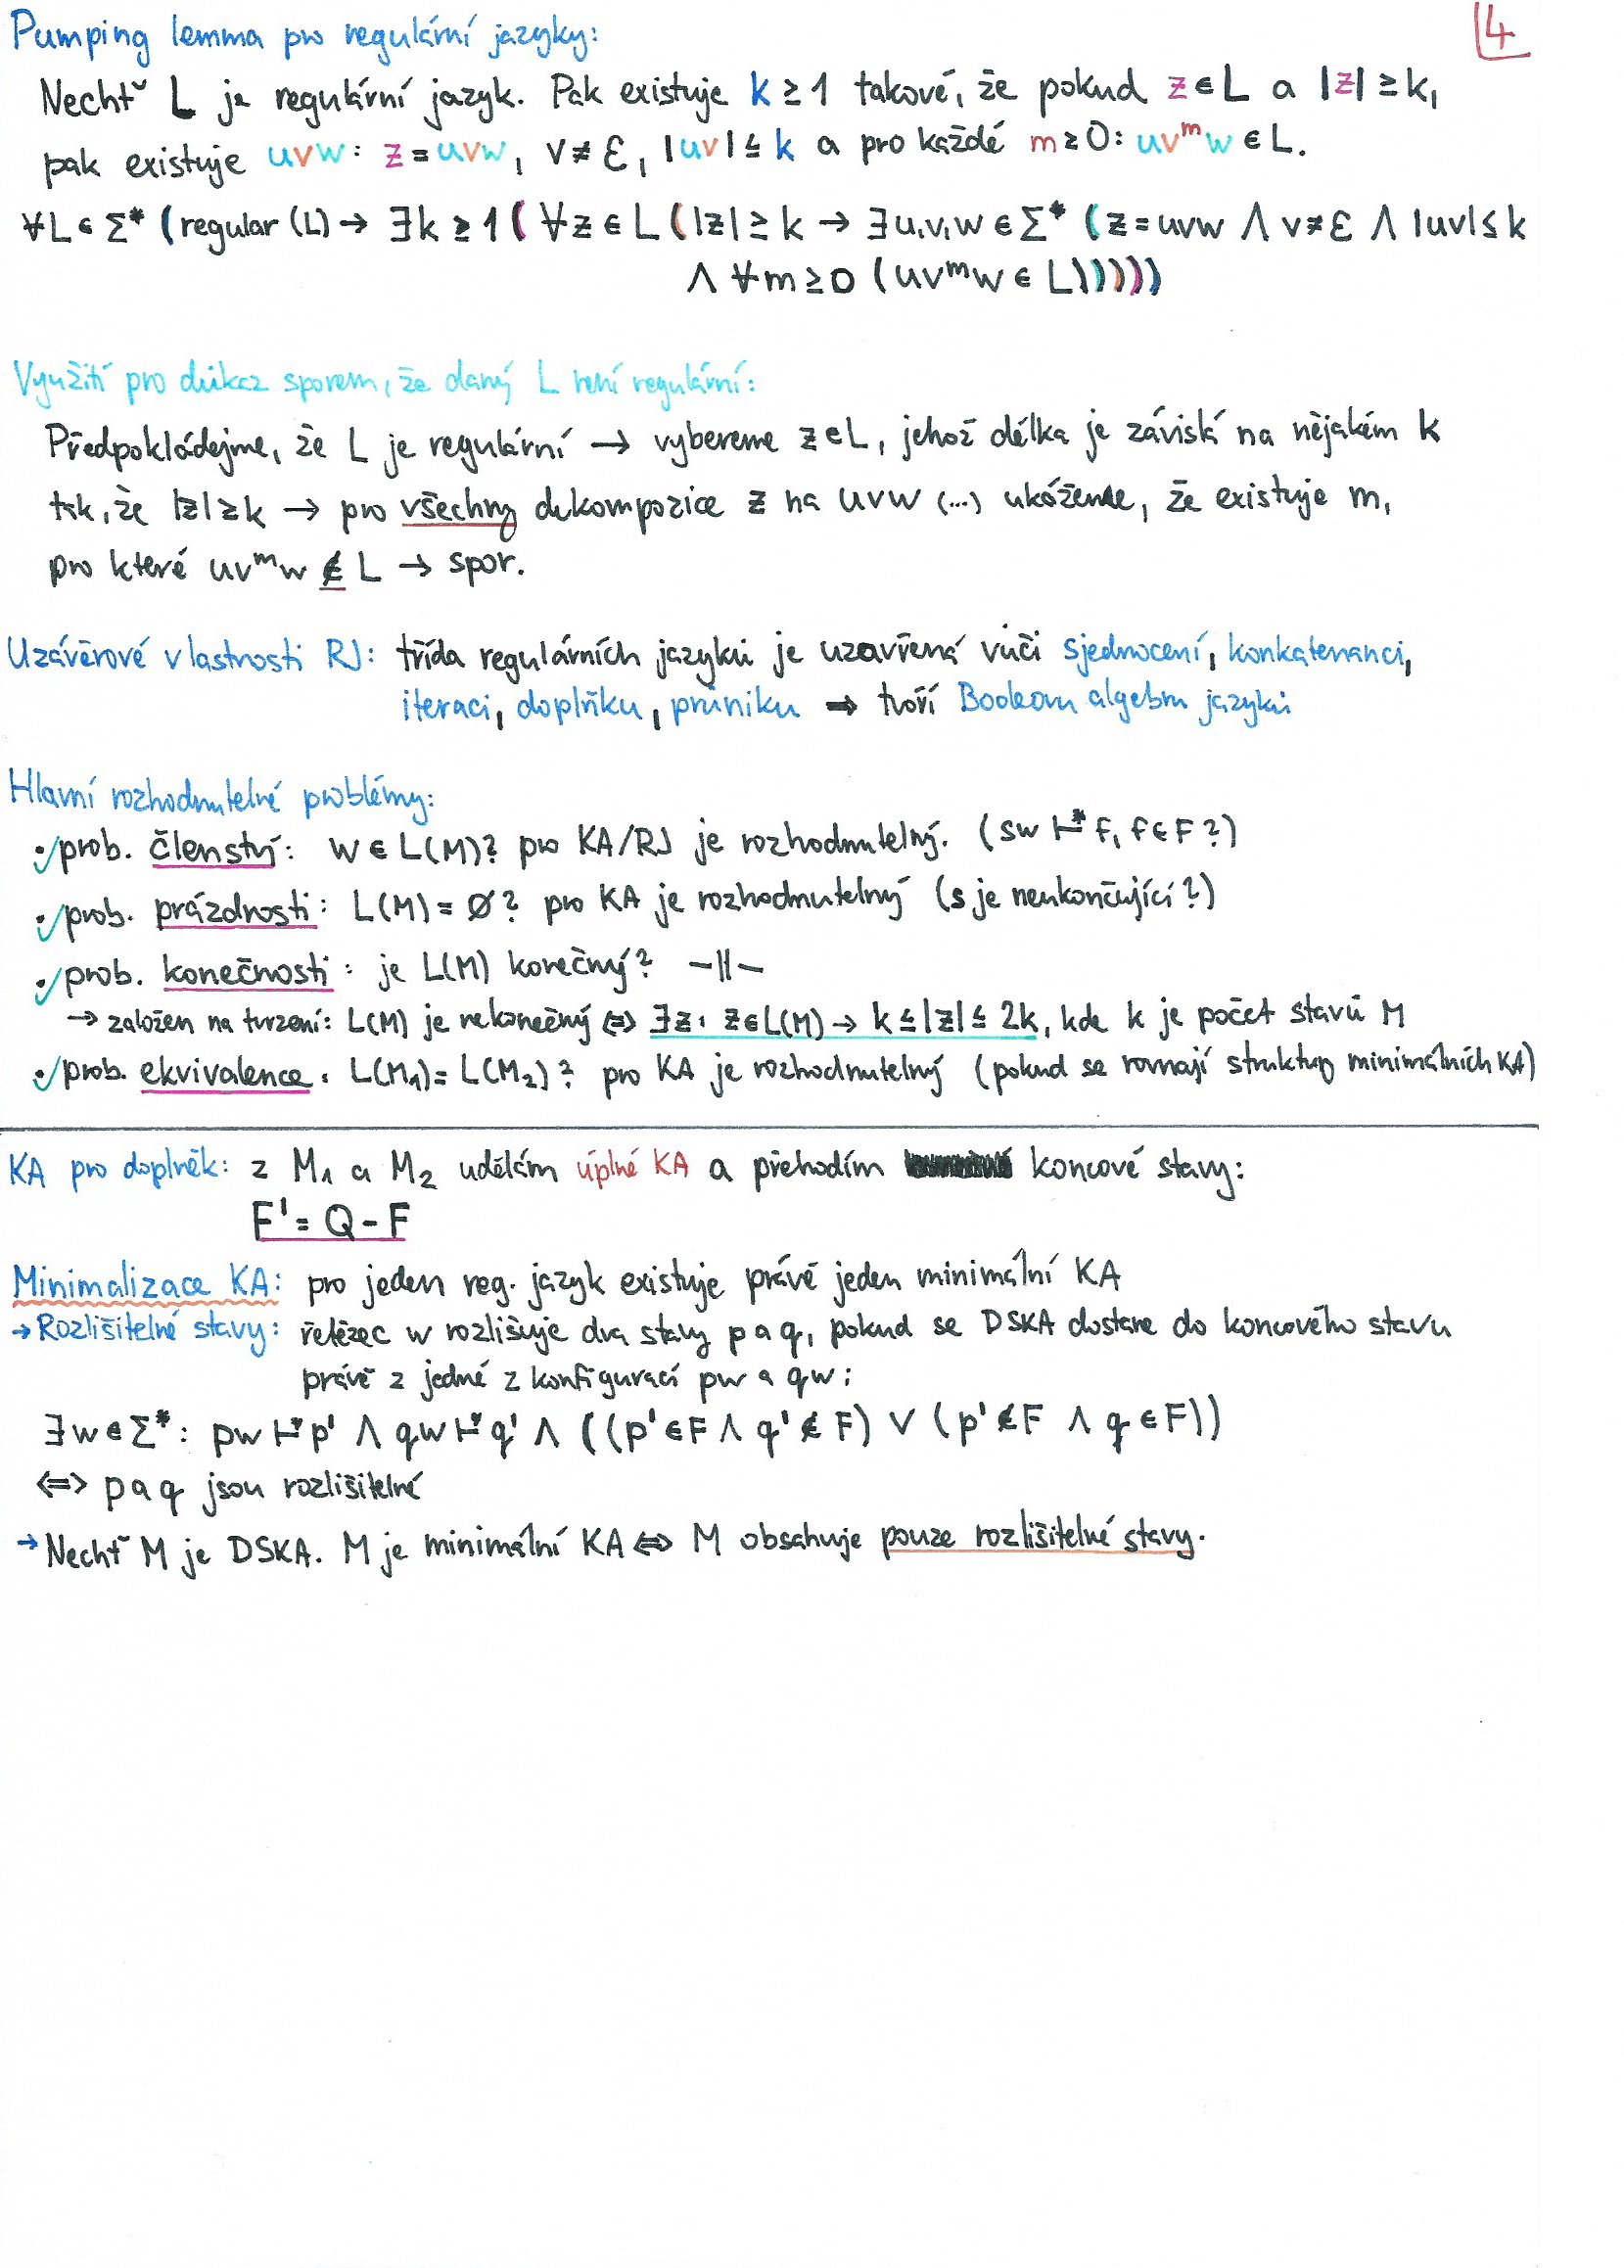 4
Pumping lemma pro regulární jazyky:
Nechť L je regulární jazyk. Pak existuje k ≥ 1 takové, že pokud z ∈ L a |z| ≥ k,
pak existuje uvw: z = uvw, v ≠ ε, |uv| ≤ k a pro každé m ≥ 0: uvᵐw ∈ L.
∀L ∈ Σ* (regular (L) → ∃k ≥ 1 ( ∀z ∈ L ( |z| ≥ k → ∃u,v,w ∈ Σ* ( z = uvw ∧ v ≠ ε ∧ |uv| ≤ k
∧ ∀m ≥ 0 (uvᵐw ∈ L)))))
Využití pro důkaz sporem, že daný L není regulární:
Předpokládejme, že L je regulární → vybereme z ∈ L, jehož délka je závislá na nějakém k
tak, že |z| ≥ k → pro všechny dekompozice z na uvw (...) ukážeme, že existuje m,
pro které uvᵐw ∉ L → spor.
Uzávěrové vlastnosti RJ: třída regulárních jazyků je uzavřená vůči sjednocení, konkatenanci,
iteraci, doplňku, průniku ⇒ tvoří Booleovu algebru jazyků
Hlavní rozhodnutelné problémy:
• prob. členství: w ∈ L(M)? pro KA/RJ je rozhodnutelný. (sw ⊢* f, f ∈ F?)
• prob. prázdnosti: L(M) = ∅? pro KA je rozhodnutelný (s je neukončující?)
• prob. konečnosti: je L(M) konečný? –||–
→ založen na tvrzení: L(M) je nekonečný ⇔ ∃z: z ∈ L(M) → k ≤ |z| ≤ 2k, kde k je počet stavů M
• prob. ekvivalence: L(M₁) = L(M₂)? pro KA je rozhodnutelný (pokud se rovnají struktury minimálních KA)
KA pro doplněk: z M₁ a M₂ udělám úplné KA a přehodím koncové stavy:
F' = Q - F
Minimalizace KA: pro jeden reg. jazyk existuje právě jeden minimální KA
→ Rozlišitelné stavy: řetězec w rozlišuje dva stavy p a q, pokud se DSKA dostane do koncového stavu
právě z jedné z konfigurací pw a qw:
∃w ∈ Σ*: pw ⊢* p' ∧ qw ⊢* q' ∧ ((p' ∈ F ∧ q' ∉ F) ∨ (p' ∉ F ∧ q ∈ F))
⇔ p a q jsou rozlišitelné
→ Nechť M je DSKA. M je minimální KA ⇔ M obsahuje pouze rozlišitelné stavy.